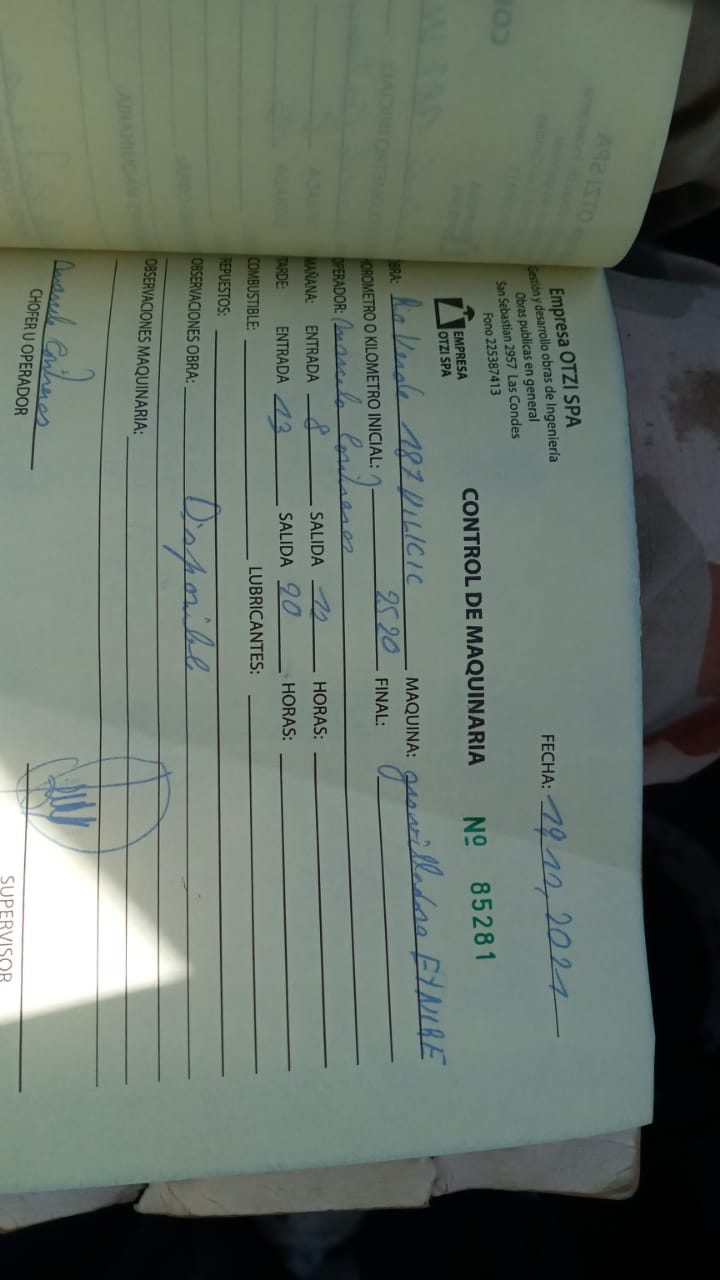 Empresa OTZI SPA
Gestión y desarrollo obras de Ingeniería
Obras publicas en general
San Sebastian 2957 Las Condes
Fono 225387413
EMPRESA
OTZI SPA
FECHA: 19 12, 2021
CONTROL DE MAQUINARIA Nº 85281
OBRA: Rio Verde 187 VILICIC MAQUINA: gravilladora
HOROMETRO O KILOMETRO INICIAL: 2520 FINAL:
OPERADOR: Marcelo Contreras
MAÑANA: ENTRADA 8 SALIDA 12 HORAS:
TARDE: ENTRADA 13 SALIDA 20 HORAS:
COMBUSTIBLE: LUBRICANTES:
REPUESTOS:
OBSERVACIONES OBRA: Disponible
OBSERVACIONES MAQUINARIA:
Marcelo Contreras
CHOFER U OPERADOR
SUPERVISOR